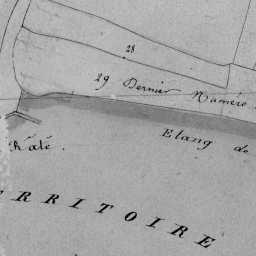 28
29 Dernier Numéro
Etang de
RRITOIRE